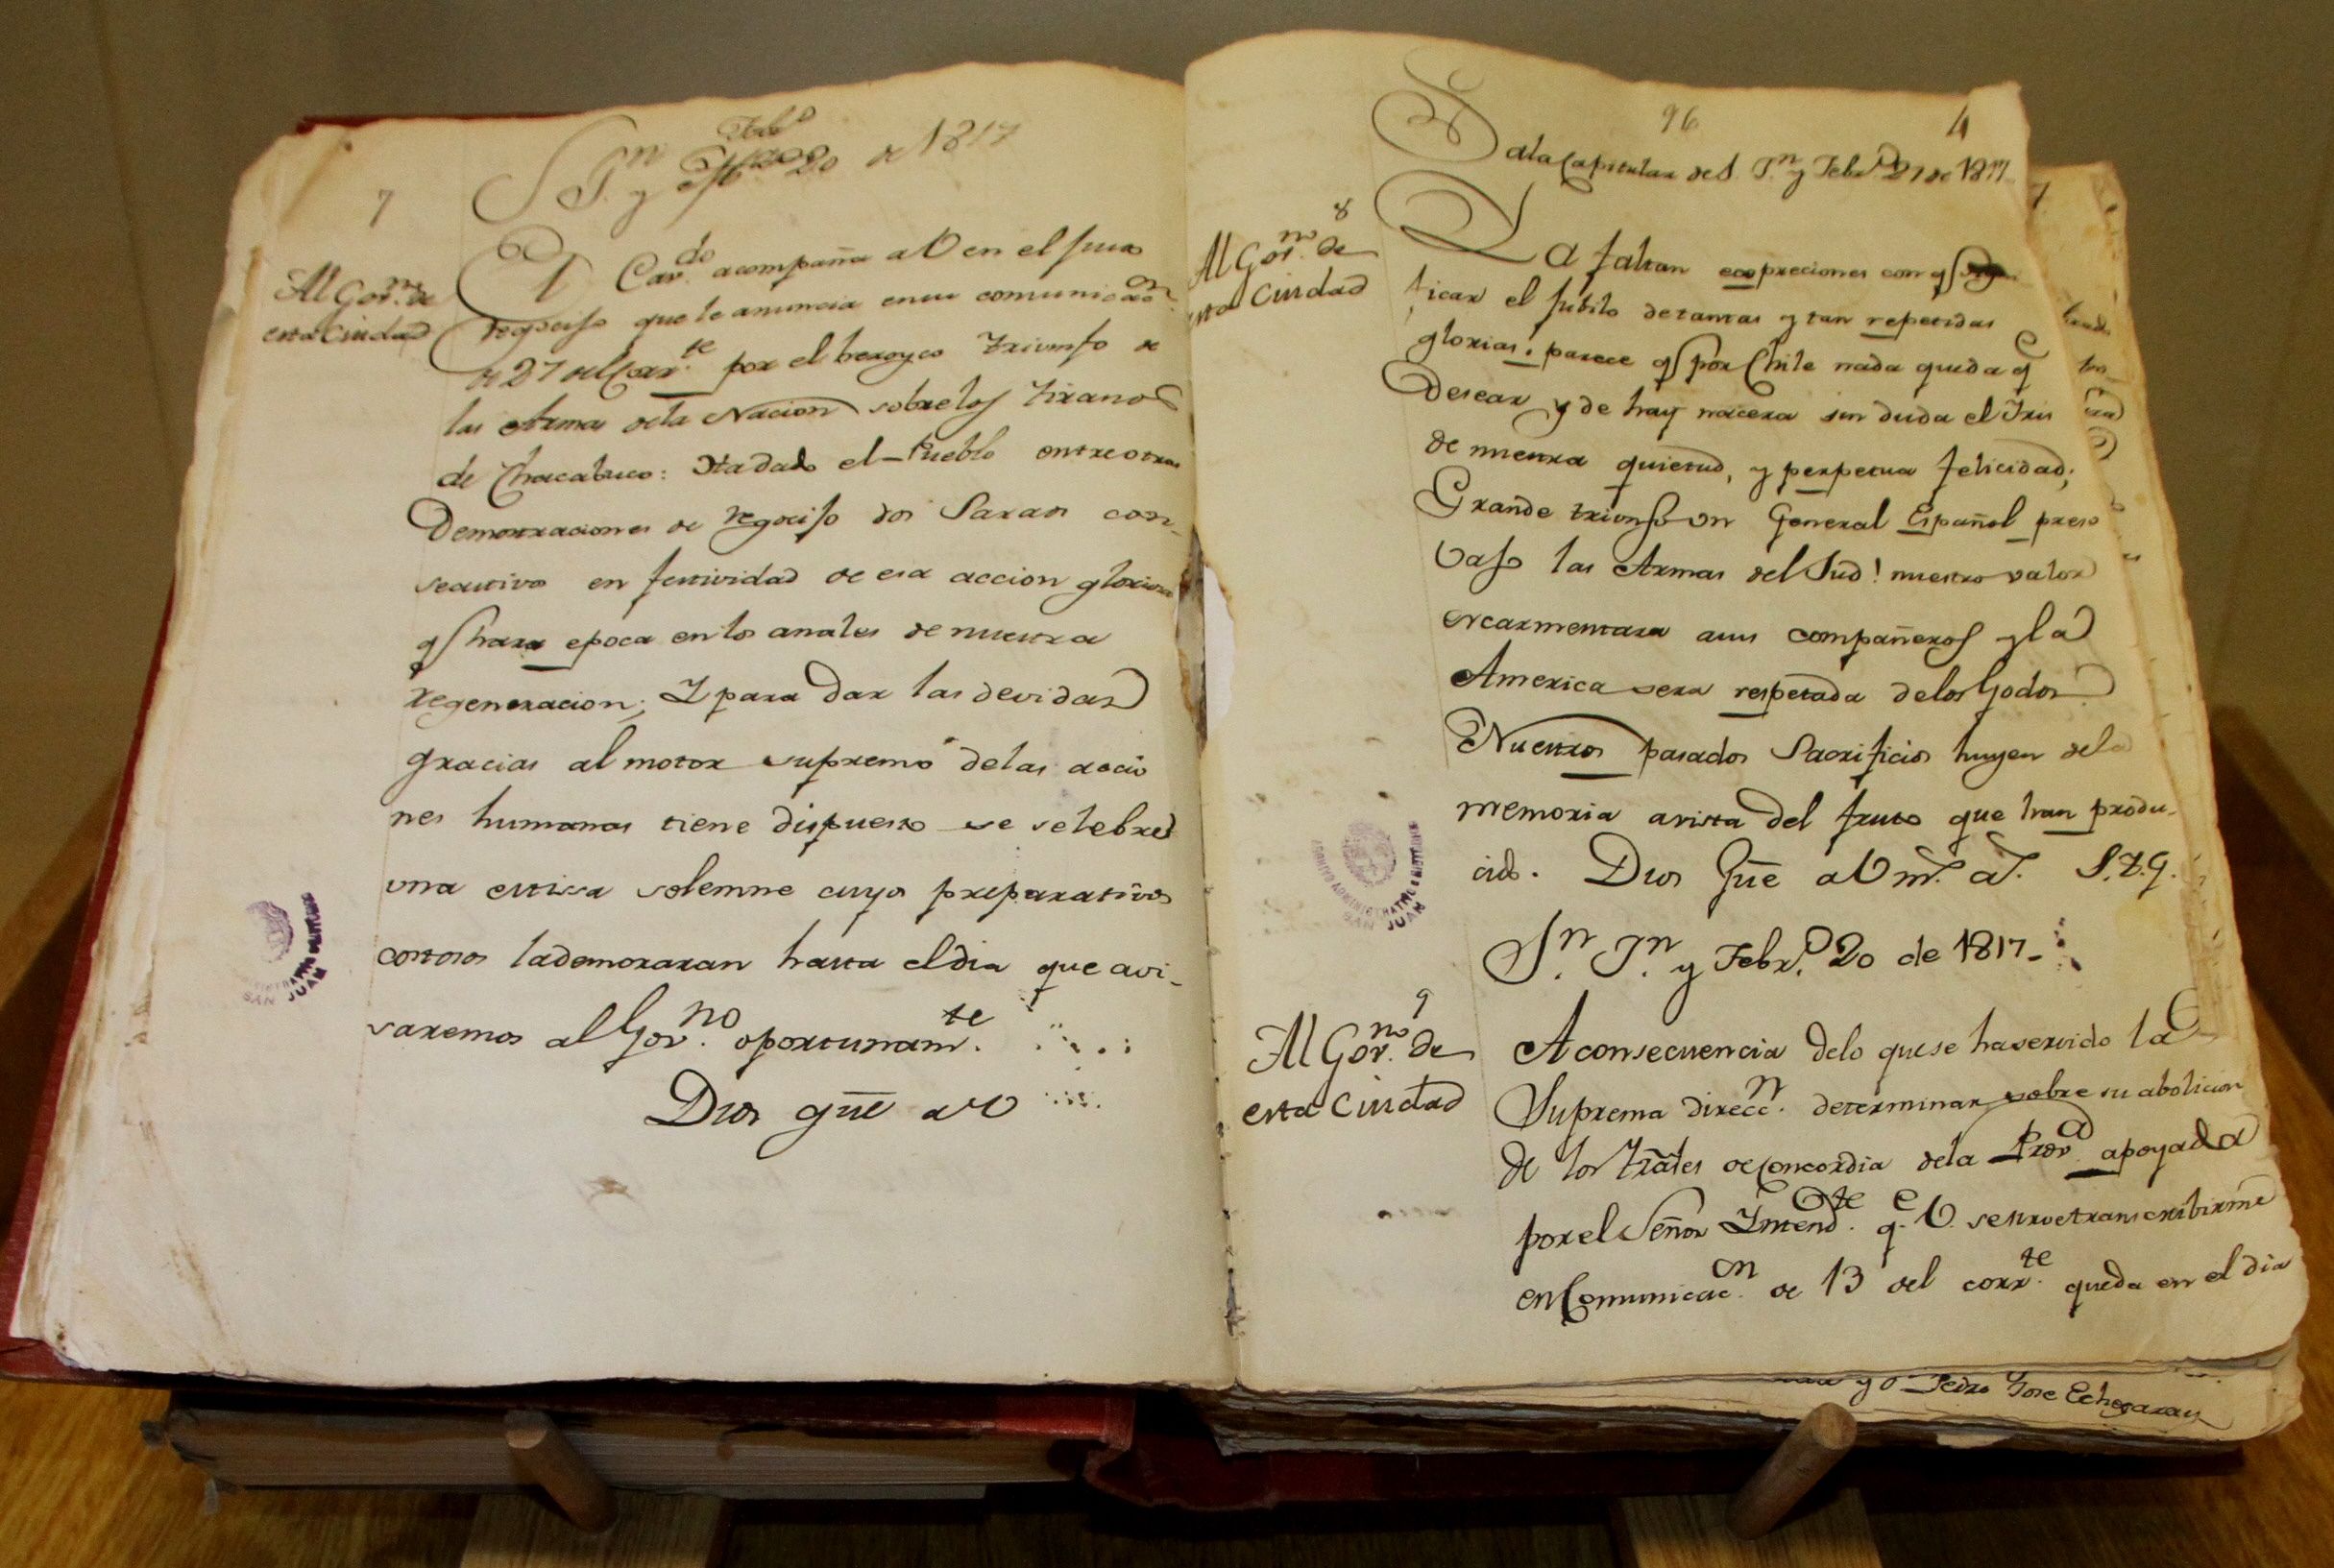 7
Sn. Jn. y Febo. 20 de 1817
Al Gov.no de
esta Ciudad
El Cav.do acompaña a V en el justo
regocijo que le anuncia en su comunicac.on
de 27 del Corr.te por el heroyco triumfo de
las Armas dela Nacion sobre los tiranos
de Chacabuco: Ha dado el Pueblo entre otras
Demostraciones de regocijo dos Saraos con-
secutivos en festividad de esa accion gloriosa
q hara epoca en los anales de nuestra
regeneracion; Y para dar las devidas
gracias al motor supremo delas accio
nes humanas tiene dispuesto se selebre
una missa solemne cuyos preparativos
costosos la demoraran hasta el dia que avi-
saremos al Gov.no oportunam.te
Dios gũe a V
96 4
Sala Capitular de S. Jn. y Febr.o 21 de 1817
8
Al Gov.no de
esta Ciudad
Ya faltan expreciones con q
ticar el jubilo de tantas y tan repetidas
glorias: parece q por Chile nada queda q
Desear y de hay nacera sin duda el Iris
de nuestra quietud, y perpetua felicidad;
Grande triunfo un General Español preso
Vajo las Armas del Sud! nuestro valor
escarmentara a sus compañeros y la
America sera respetada delos Godos
Nuestros pasados Sacrificios huyen dela
memoria avista del fruto que han produ-
cido. Dios Gũe a V m.s a.s S.t.g.
Sn. Jn. y Febr.o 20 de 1817-
9
Al Gov.no de
esta Ciudad
A consecuencia delo que se ha servido la
Suprema direcc.n determinar sobre su abolicion
de los trãles de Concordia dela Prov.a apoyada
por el Señor Intend.te q.e V. se sirve transcribirme
en Comunicac.on de 13 del corr.te queda en el dia
y D Pedro Jose Echegaray
ARCHIVO ADMINISTRATIVO E HISTORICO
SAN JUAN
SAN JUAN